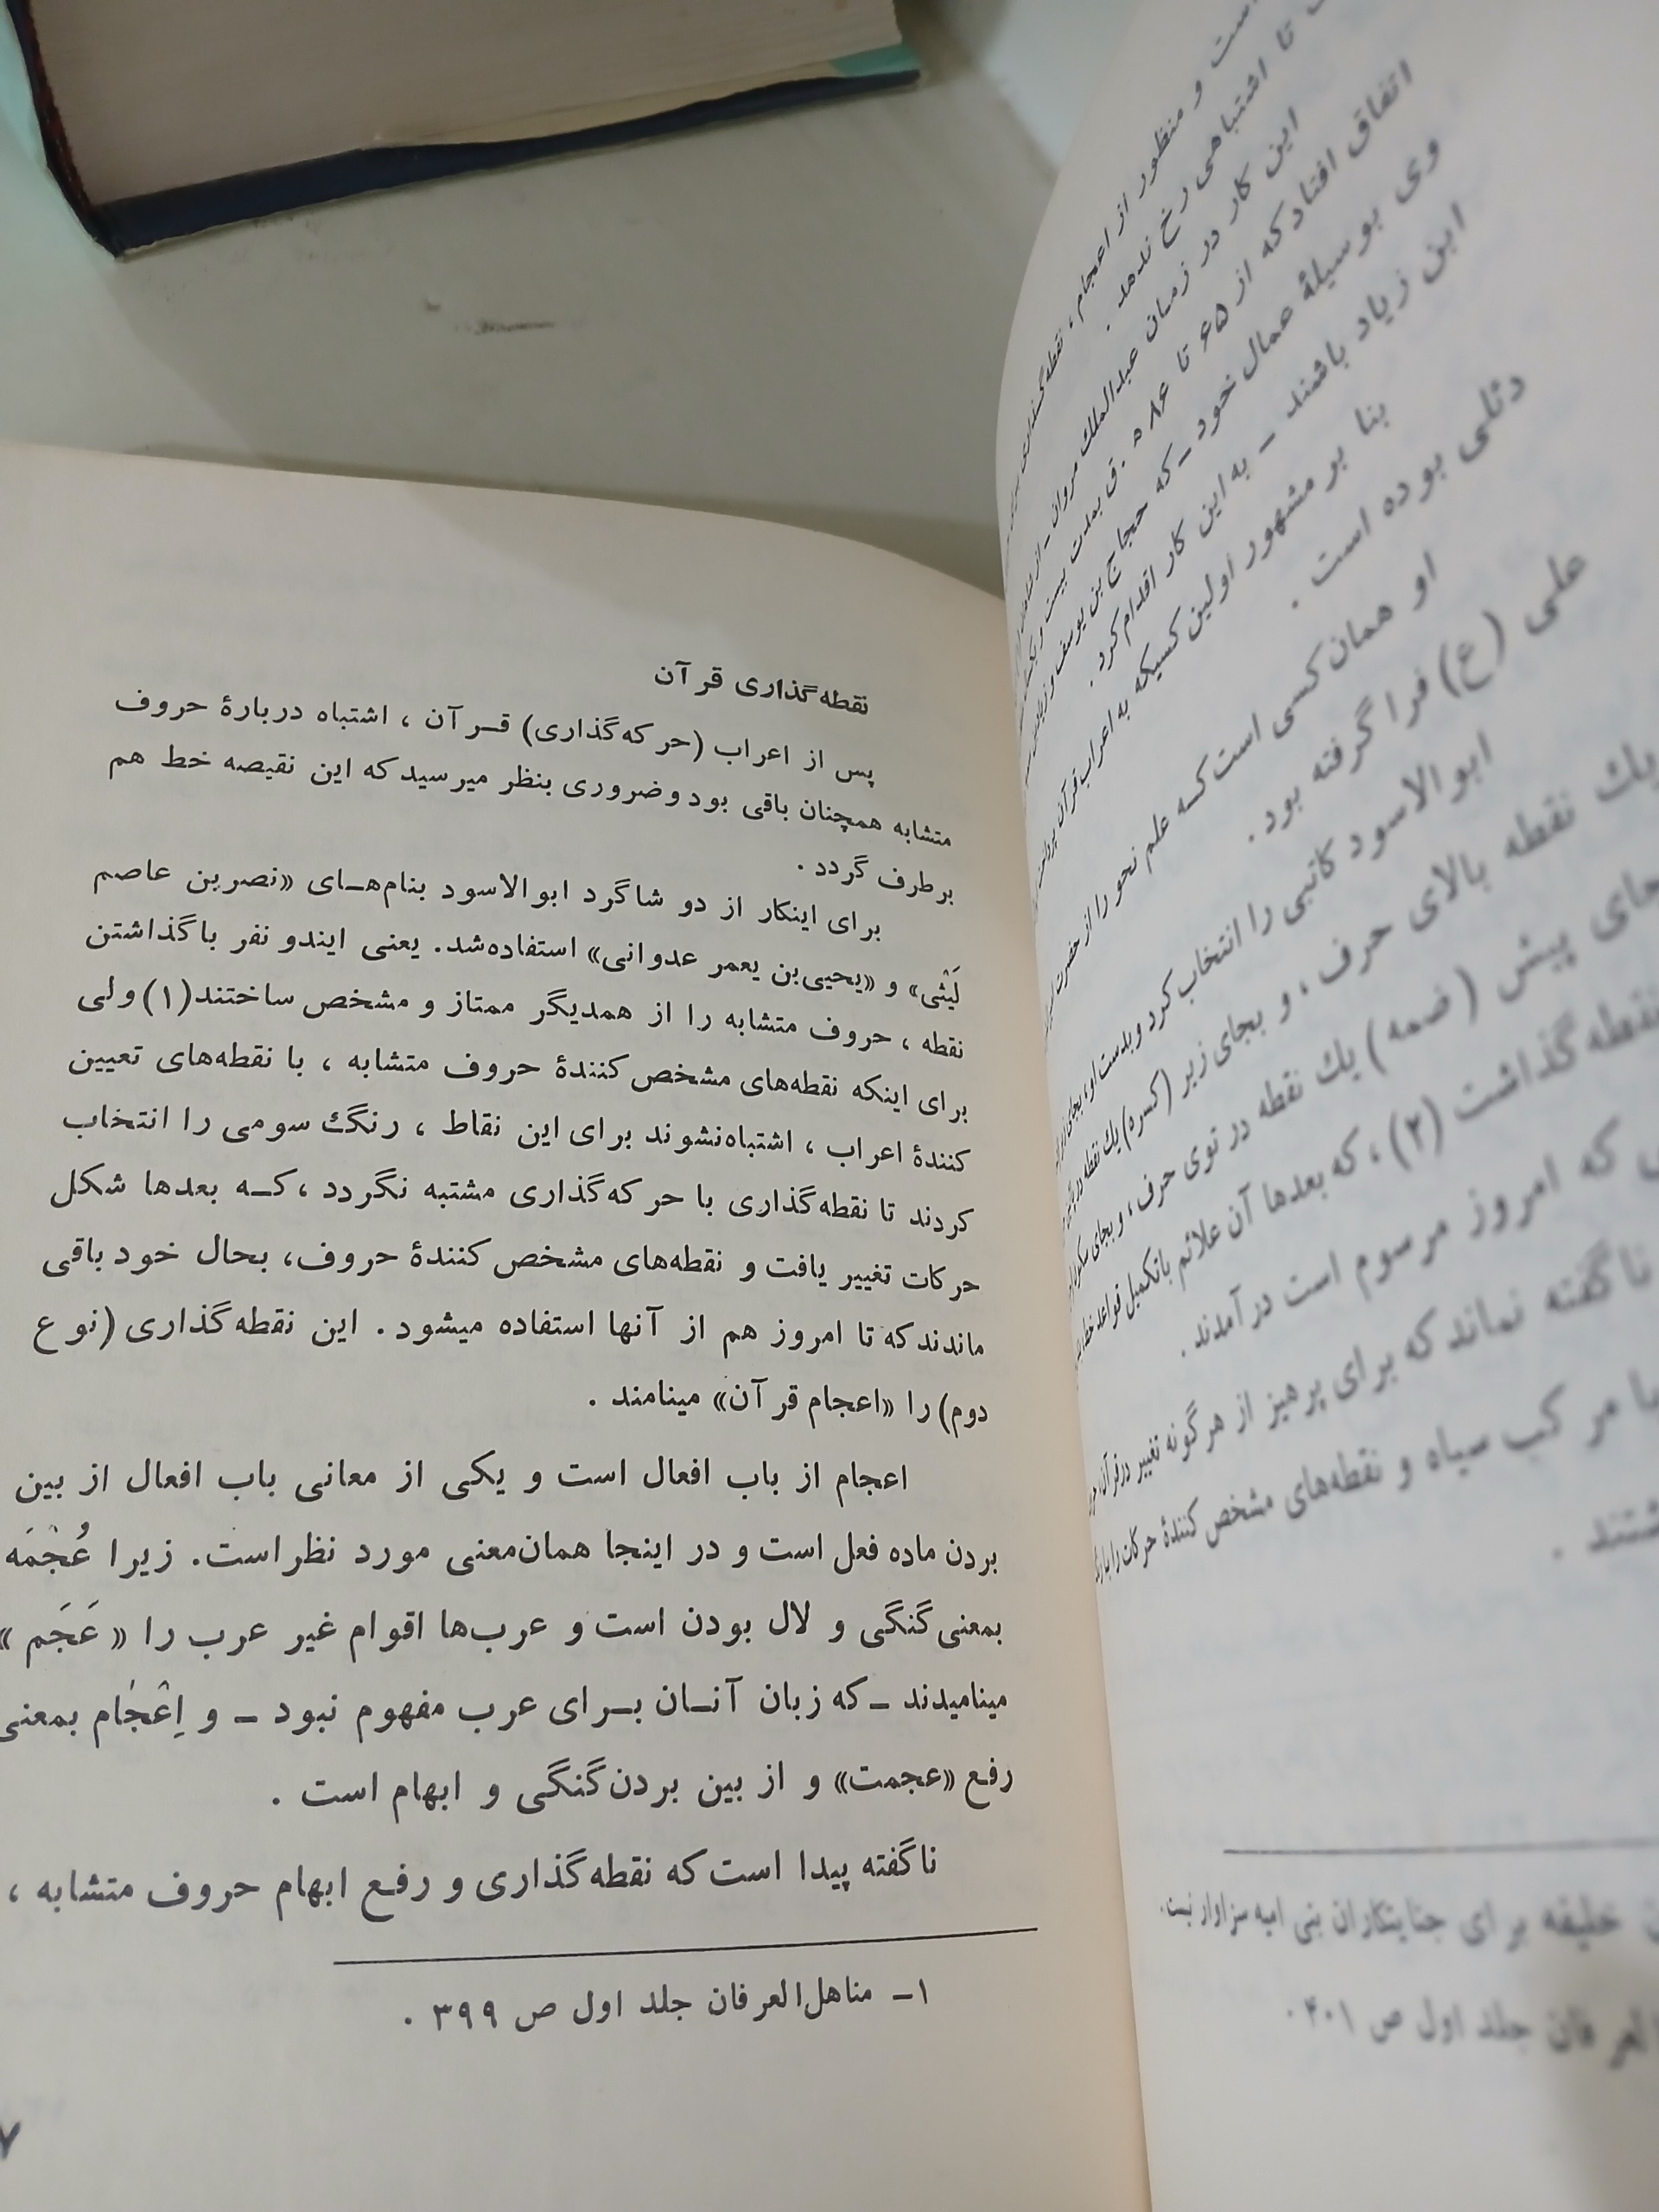 است و منظور از اعجام ، نقطه‌گذاری
تا اشتباهی رخ ندهد .
این کار در زمان عبدالملك مروان ـ از
اتفاق افتاد که از ۶۵ تا ۸۶ ه . ق بمدت بیست و یک
وی بوسیلهٔ عمال خود ـ که حجاج بن یوسف و زیاد
ابن زیاد باشند ـ به این کار اقدام کرد .
بنا بر مشهور اولین کسیکه به اعراب قرآن
دئلی بوده است .
او همان کسی است کـه علم نحو را از حضرت
علی (ع) فرا گرفته بود .
ابوالاسود کاتبی را انتخاب کرد و بدست او ، بجای
یك نقطه بالای حرف ، و بجای زیر (کسره) یك نقطه در
جای پیش (ضمه) یك نقطه در توی حرف ، و بجای
نقطه گذاشت (۲) ، که بعدها آن علائم باتکمیل قواعد
که امروز مرسوم است درآمدند .
ناگفته نماند که برای پرهیز از هر گونه تغییر در قرآن
مرکب سیاه و نقطه‌های مشخص کنندهٔ حرکات را با
خلیفه برای جنایتکاران بنی امیه سزاوار نیست .
العرفان جلد اول ص ۴۰۱ .
نقطه‌گذاری قرآن
پس از اعراب (حرکه‌گذاری) قـرآن ، اشتباه دربارهٔ حروف
متشابه همچنان باقی بود وضروری بنظر میرسید که این نقیصه خط هم
برطرف گردد .
برای اینکار از دو شاگرد ابوالاسود بنام‌هـای «نصربن عاصم
لَیْثی» و «یحیی‌بن یعمر عدوانی» استفاده‌شد. یعنی ایندو نفر باگذاشتن
نقطه ، حروف متشابه را از همدیگر ممتاز و مشخص ساختند(۱) ولی
برای اینکه نقطه‌های مشخص کنندهٔ حروف متشابه ، با نقطه‌های تعیین
کنندهٔ اعراب ، اشتباه‌نشوند برای این نقاط ، رنگك سومی را انتخاب
کردند تا نقطه‌گذاری با حرکه‌گذاری مشتبه نگردد ، کـه بعدها شکل
حرکات تغییر یافت و نقطه‌های مشخص کنندهٔ حروف، بحال خود باقی
ماندند که تا امروز هم از آنها استفاده میشود . این نقطه‌گذاری (نوع
دوم) را «اعجام قرآن» مینامند .
اعجام از باب افعال است و یکی از معانی باب افعال از بین
بردن ماده فعل است و در اینجا همان‌معنی مورد نظراست. زیرا عُجْمَه
بمعنی گنگی و لال بودن است و عرب‌ها اقوام غیر عرب را « عَجَم »
مینامیدند ـ که زبان آنـان بـرای عرب مفهوم نبود ـ و اِعْجٰام بمعنی
رفع «عجمت» و از بین بردن گنگی و ابهام است .
ناگفته پیدا است که نقطه‌گذاری و رفع ابهام حروف متشابه ،
۱ـ مناهل‌العرفان جلد اول ص ۳۹۹ .
۷